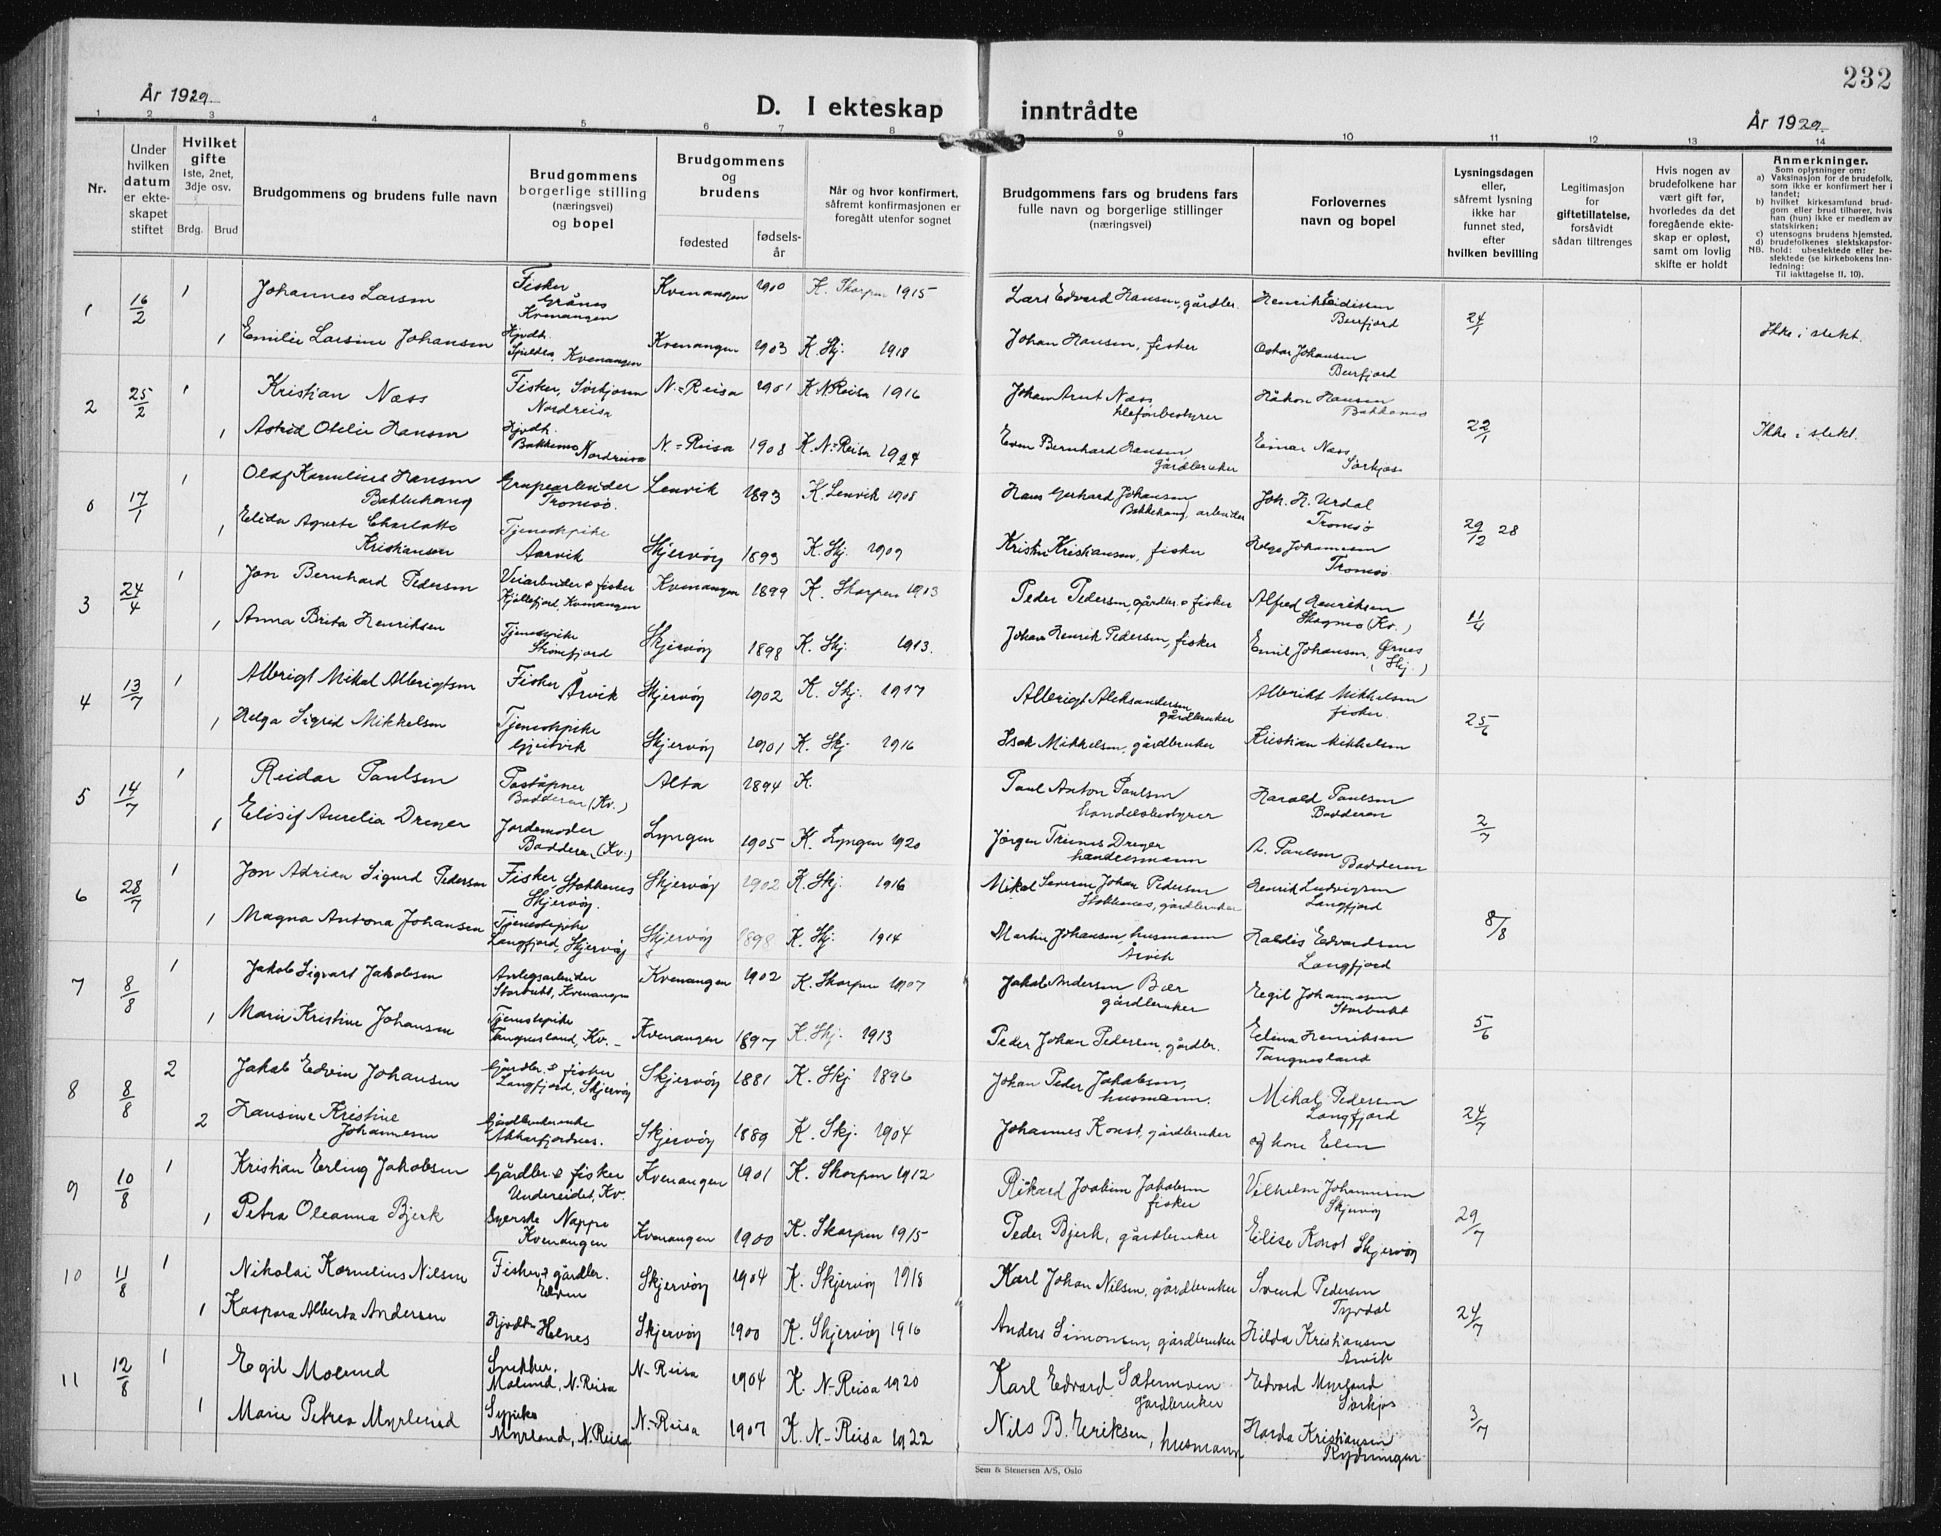 232
År 1929.
D. I ekteskap inntrådte
År 1929.
1 2 3 4 5 6 7 8 9 10 11 12 13 14
Nr.
Under hvilken datum er ekteskapet stiftet
Hvilket gifte
1ste, 2net, 3dje osv.
Brdg. Brud
Brudgommens og brudens fulle navn
Brudgommens borgerlige stilling (næringsvei) og bopel
Brudgommens og brudens
fødested
fødsels-år
Når og hvor konfirmert, såfremt konfirmasjonen er foregått utenfor sognet
Brudgommens fars og brudens fars fulle navn og borgerlige stillinger (næringsvei)
Forlovernes navn og bopel
Lysningsdagen eller, såfremt lysning ikke har funnet sted, efter hvilken bevilling
Legitimasjon for giftetillatelse, forsåvidt sådan tiltrenges
Hvis nogen av brudefolkene har vært gift før, hvorledes da det foregående ekteskap er opløst, samt om lovlig skifte er holdt
Anmerkninger.
Som oplysninger om:
a) Vaksinasjon for de brudefolk, som ikke er konfirmert her i landet;
b) hvilket kirkesamfund brudgom eller brud tilhører, hvis han (hun) ikke er medlem av statskirken;
c) utensogns brudens hjemsted.
d) brudefolkenes slektskapsforhold: ubeslektede eller beslektede (se kirkebokens Innledning: Til iakttagelse II, 10).
NB.
1 16/2 1 Johannes Larsen Fisker Grånes Kvenangen Kvenangen 1900 K. Skorpen 1915 Lars Edvard Hansen, gårdbr. Henrik Eidissen Burfjord 24/1
1 Emilie Larsine Johansen Hjvdt. Spildra, Kvenangen Kvenangen 1903 K. Skj. 1918 Johan Hansen, fisker Oskar Johansen Burfjord Ikke i slekt.
2 25/2 1 Kristian Næss Fisker, Sørkjosen Nordreisa N.-Reisa 1901 K. N.Reisa 1916 Johan Arnt Næss telefonbestyrer Håkon Hansen Bakkenes 22/1
1 Astrid Otelie Hansen Hjvdt. Bakkenes Nordreisa N.-Reisa 1908 K. N.-Reisa 1924 Even Bernhard Hansen gårdbruker Einar Næss Sørkjos Ikke i slekt.
0 17/1 1 Olaf Kornelius Hansen Bakkehaug Grupearbeider Tromsø. Lenvik 1893 K. Lenvik 1908 Hans Gerhard Johansen Bakkehaug, arbeider Joh. H. Urdal Tromsø 29/12 28
1 Elida Agnete Charlotte Kristiansen Tjenestpike Aarvik Skjervøy 1893 K. Skj. 1909 Kristen Kristiansen, fisker Helge Johannesen Tromsø.
3 24/4 1 Jon Bernhard Pedersen Veiarbeider & fisker Kjøllefjord, Kvenangen Kvenangen 1899 K. Skorpen 1913 Peder Pedersen, gårdbr. & fisker Alfred Henriksen Skognes (Kv.) 11/4
1 Anna Brita Henriksen Tjenestpike Skønsfjord Skjervøy 1898 K. Skj. 1913. Johan Henrik Pedersen, fisker Emil Johansen, Ørnes (Skj.)
4 13/7 1 Albrigt Mikal Albrigtsen Fisker Årvik Skjervøy 1902 K. Skj. 1917 Albrigt Aleksandersen gårdbruker Albrikt Mikkelsen fisker. 25/6
1 Helga Sigrid Mikkelsen Tjenestpike Gjeitvik Skjervøy 1901 K. Skj. 1916 Isak Mikkelsen, gårdbruker Kristian Mikkelsen
5 14/7 1 Reidar Paulsen Poståpner Badderen (Kv.) Alta 1894 K. Paul Anton Paulsen handelsbestyrer Harald Paulsen Badderen 2/7
1 Elisif Aurelia Dreyer Jordemoder Badderen (Kv.) Lyngen 1905 K. Lyngen 1920 Jørgen Dreyer handelsmann A. Paulsen Badderen
6 28/7 1 Jon Adrian Sigurd Pedersen Fisker, Stokkenes Skjervøy. Skjervøy 1902 K. Skj. 1916 Mikal Severin Johan Pedersen Stokkenes, gårdbruker Henrik Ludvigsen Langfjord 8/8
1 Magna Antona Johansen Tjenestepike Langfjord, Skjervøy Skjervøy 1898 K. Skj. 1914 Martin Johansen, husmann Årvik Haldis Edvardsen Langfjord
7 8/8 1 Jakob Sigvart Jakobsen Anlegsarbeider Storbukt, Kvenangen Kvenangen 1902 K. Skorpen 1907 Jakob Andersen Bær gårdbruker Egil Johannesen Storbukt 5/6
1 Marie Kristine Johansen Tjenestpike Tangnesland, Kv. Kvenangen 1897 K. Skj. 1913 Peder Johan Pedersen, gårdbr. Elina Henriksen Tangnesland
8 8/8 2 Jakob Edvin Johansen Gårdbr. & fisker Langfjord, Skjervøy Skjervøy 1881 K. Skj 1896 Johan Peder Jakobsen, husmann. Mikal Pedersen Langfjord 24/7
2 Hansine Kristine Johannesen Gårdbrukerenke Akkarfjordnes. Skjervøy 1889 K. Skj. 1904 Johannes Konst, gårdbruker og kone Elen
9 10/8 1 Kristian Erling Jakobsen Gårdbr. & fisker Undereidet, Kv. Kvenangen 1901 K. Skorpen 1912 Rikard Joakim Jakobsen fisker Vilhelm Johannesen Skjervøy 29/7
1 Petra Oleanna Bjerk Syerske Nappe Kvenangen Kvenangen 1900 K. Skorpen 1915 Peder Bjerk, gårdbruker Elise Konst Skjervøy
10 11/8 1 Nikolai Kornelius Nilsen Fisker & gårdbr. Elven Skjervøy 1904 K. Skjervøy 1918 Karl Johan Nilsen, gårdbruker Svend Pedersen Tyvdal 24/7
1 Kaspara Alberta Andersen Hjvdt. Helnes Skjervøy 1900 K. Skjervøy 1916 Anders Simonsen, gårdbruker Hilda Kristiansen Arvik
11 12/8 1 Egil Molund Snekker. Molund, N.Reisa N-Reisa 1904 K. N-Reisa 1920 Karl Edvard Sætermoen Gårdbruker Edvard Myrlund Sørkjos 3/7
1 Marie Petrea Myrlund Sypike Myrlund, N.Reisa N.-Reisa 1907 K. N-Reisa 1922 Nils B. Eriksen, husmann Harda Kristiansen Rydningen
Sem & Stenersen A/S, Oslo